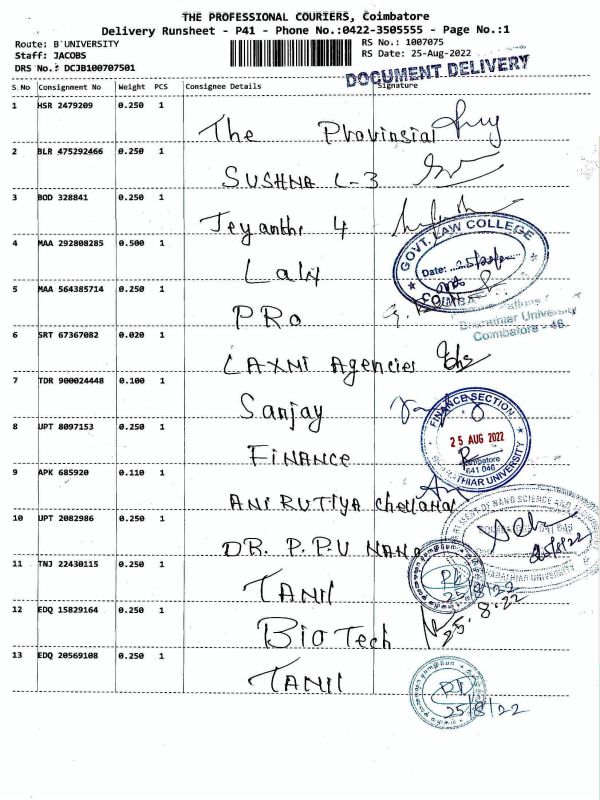 THE PROFESSIONAL COURIERS, Coimbatore
Delivery Runsheet - P41 - Phone No.:0422-3505555 - Page No.:1
Route: B UNIVERSITY
Staff: JACOBS
DRS No.: DCJB100707501
RS No.: 1007075
RS Date: 25-Aug-2022
DOCUMENT DELIVERY
S.No Consignment No Weight PCS Consignee Details Signature
1 HSR 2479209 0.250 1
The Provinsial
2 BLR 475292466 0.250 1
SUSHNA L-3
3 BOD 328841 0.250 1
Jeyanthi 4
GOVT. LAW COLLEGE
Date:
4 MAA 292808285 0.500 1
Laly
5 MAA 564385714 0.250 1
PRO
Bharathiar University
Coimbatore - 46
6 SRT 67367082 0.020 1
LAXMI Agencies
7 TDR 900024448 0.100 1
Sanjay
FINANCE SECTION
25 AUG 2022
Coimbatore
641 046
BHARATHIAR UNIVERSITY
8 UPT 8097153 0.250 1
FINANCE
9 APK 685920 0.110 1
ANIRUTIYA
10 UPT 2082986 0.250 1
DR. P.P.U NANO
NANO SCIENCE AND
25/8/22
BHARATHIAR UNIVERSITY
11 TNJ 22430115 0.250 1
TANIL
25/8/22
12 EDQ 15829164 0.250 1
BioTech
25.8.22
13 EDQ 20569108 0.250 1
TANIL
25/8/22